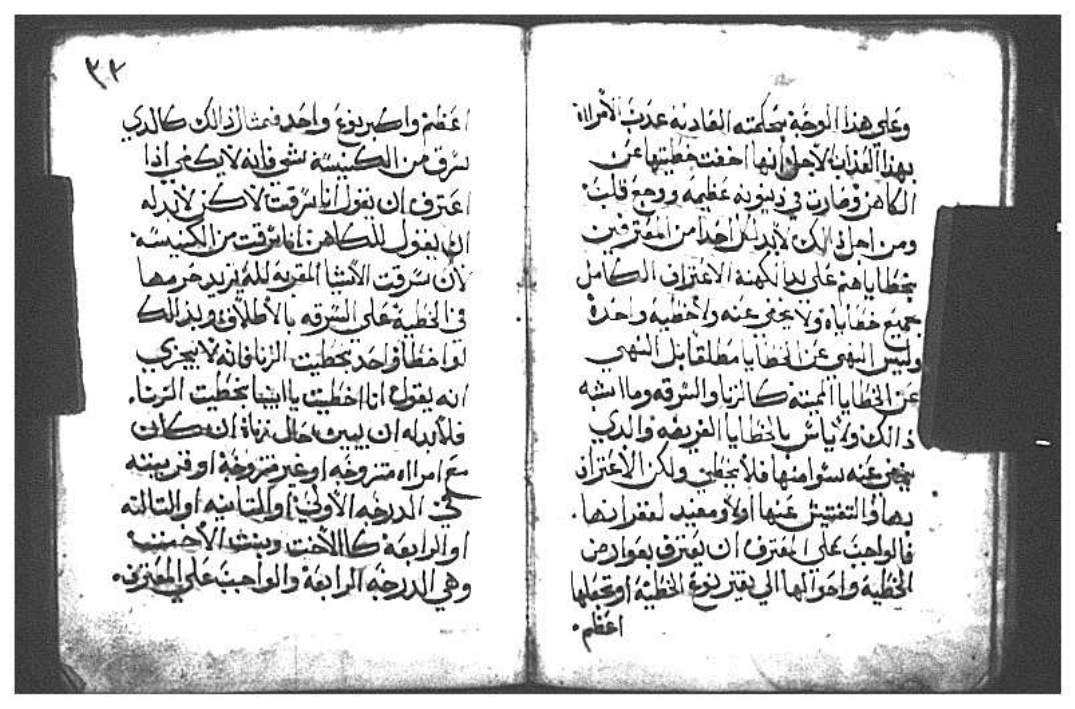 وعلي هذا الوجه بحكمته العادله عذب الأمراه
بهذا العذاب لاجل انها اخفت خطيتها عن
الكاهن وصارت في دينونه عظيمه ووجع قلب
ومن اجل ذالك لابد لكل احدا من المعترفين
بخطاياهم على يد الكهنة الاعتراف الكامل
بجميع خطاياه ولا يخفي عنه ولا خطيه واحدة
وليس النهي عن الخطايا مطلقا بل النهي
عن الخطايا المميته كالزنا والسرقه وما اشبه
ذالك ولا باس بالخطايا العرضيه والذي
يخفي عنه سوا منها فلا يخطي ولكن الاعتراف
بها والتفتيش عنها اولا ومفيد لغفرانها.
فالواجب علي المعترف ان يعترف بعوارض
الخطية واحوالها الي يغير نوع الخطية او تجعلها
اعظم.
٣٢
اعظم واكبر نوع واحد فمثال ذالك كالدي
سرق من الكنيسه شي فانه لا يكفي اذا
اعترف ان يقول انا سرقت لاكن لابد له
ان يقول للكاهن انا سرقت من الكنيسه.
لان سرقت الاشيا المقربه لله يزيد جرمها
في الخطية علي السرقه بالاطلاق وبذالك
لو اخطا واحد بخطيت الزنا فانه لا يجزي
انه يقول انا اخطيت يا ابينا بخطيت الزنا.
فلا بد له ان يبين حال زناة ان كان
مع امراه متزوجه او غير متزوجة او قريبته
في الدرجه الاولي او التانيه او التالته
او الرابعة كالاخت وبنت
وهي الدرجه الرابعة والواجب علي المعترف.